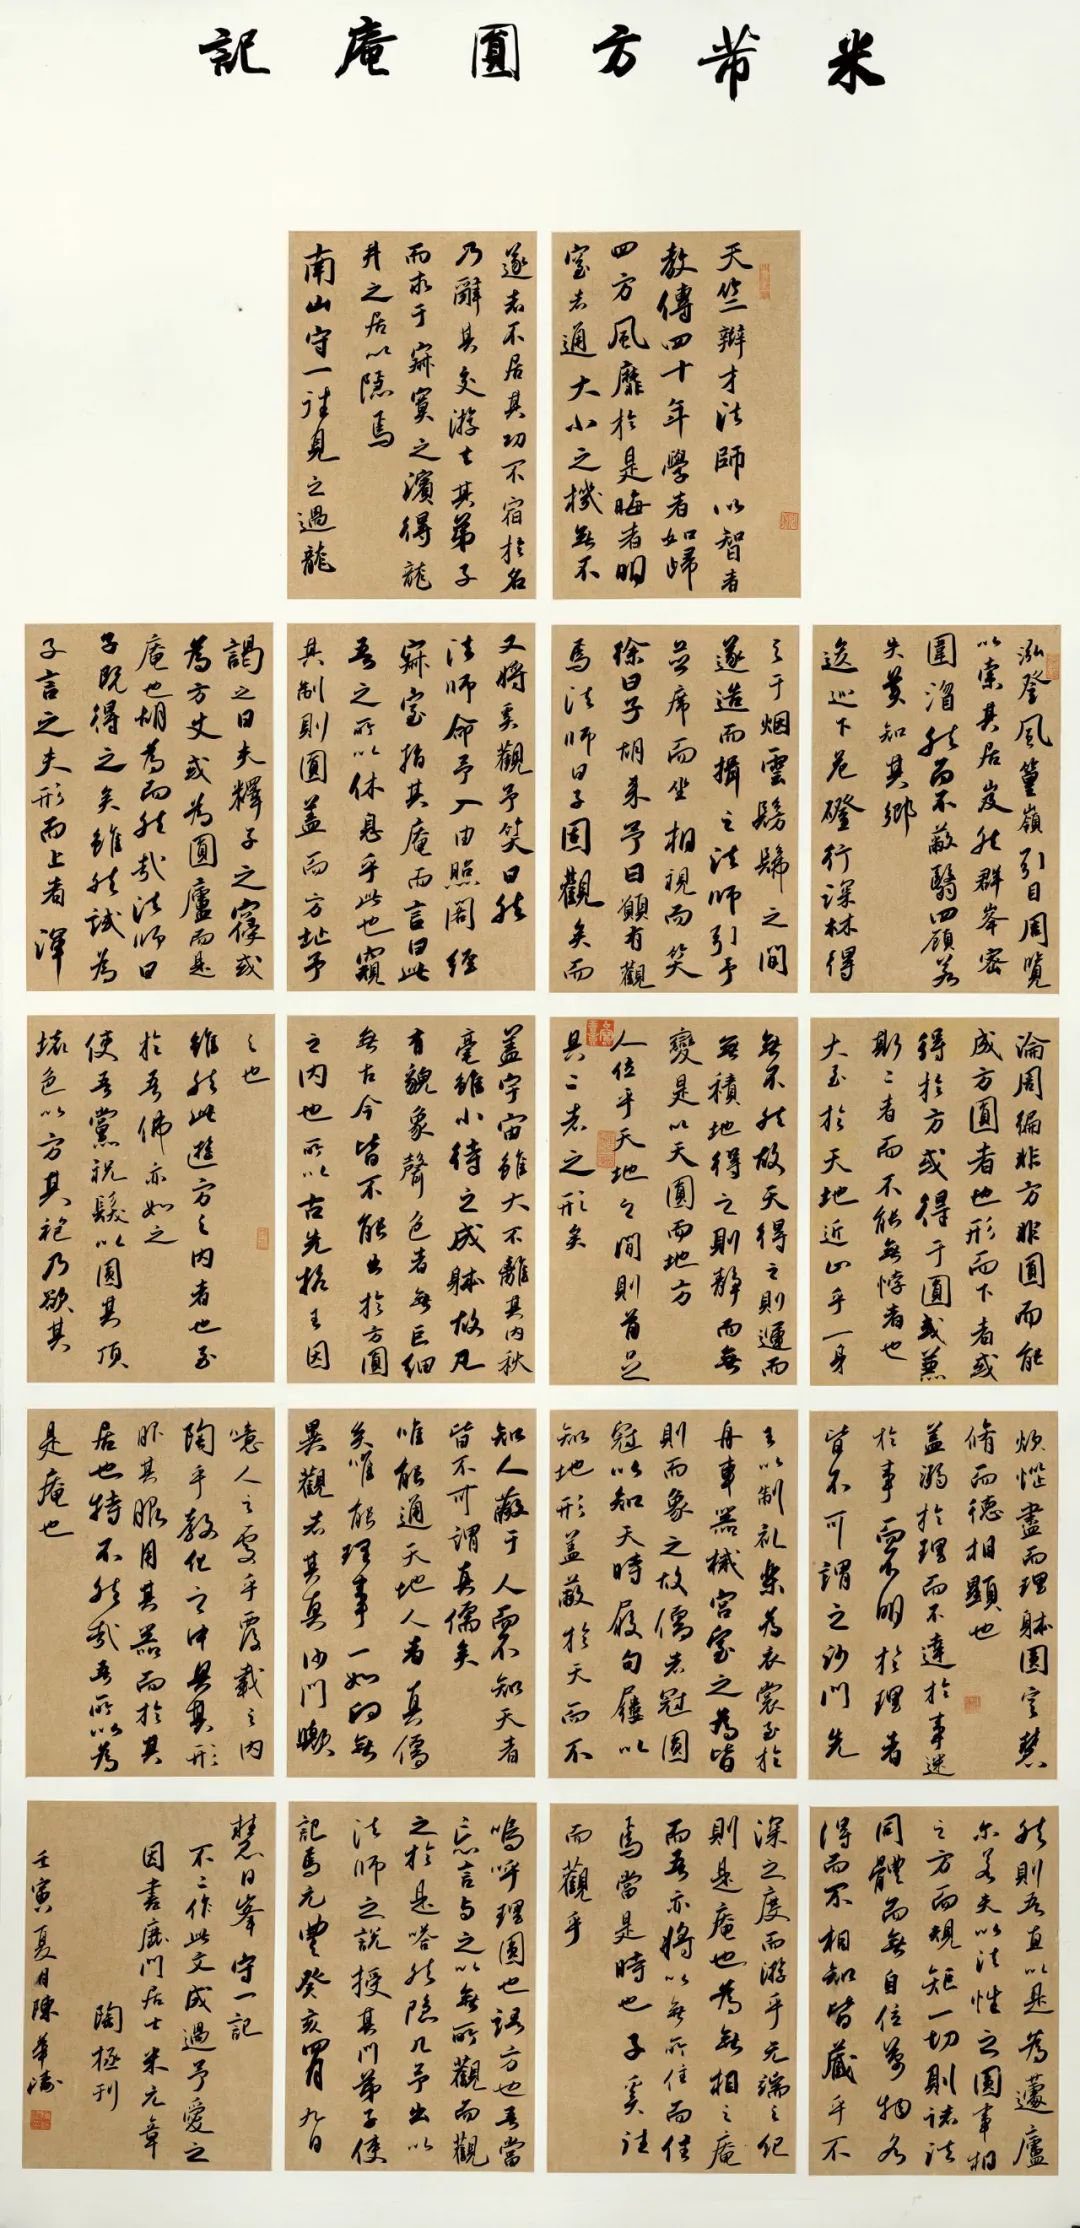 米芾方圓庵記
天竺辯才法師以智者
教傳四十年學者如歸
四方風靡於是晦者明
窒者通大小之機無不
遂者不居其功不宿於名
乃辭其交游去其弟子
而求于寂寞之濱得龍
井之居以隱焉
南山守一往見之過龍
泓登風篁嶺引目周覽
以索其居岌然群峯密
圍溜然而不蔽翳四顧若
失莫知其鄉
逡巡下危磴行深林得
之于烟雲髣髴之間
遂造而揖之法師引予
並席而坐相視而笑
徐曰子胡來予曰願有觀
焉法師曰子固觀矣而
又將奚觀予笑曰然
法師命予入由照閣經
寂室指其庵而言曰此
吾之所以休息乎此也窺
其制則圓蓋而方址予
謁之曰夫釋子之寢或
為方丈或為圓廬而是
庵也胡為而然哉法師曰
子既得之矣雖然試為
子言之夫形而上者渾
淪周徧非方非圓而能
成方圓者也形而下者或
得於方或得于圓或兼
斯二者而不能無悖者也
大至於天地近止乎一身
無不然故天得之則運而
無積地得之則靜而無
變是以天圓而地方
人位乎天地之間則首足
具二者之形矣
蓋宇宙雖大不離其内秋
毫雖小待之成體故凡
有貌象聲色者無巨細
無古今皆不能出於方圓
之内也所以古先哲王因
之也
雖然此遊方之内者也至
於吾佛亦如之
使吾黨祝髮以圓其頂
壞色以方其袍乃欲其
煩惱盡而理體圓定慧
脩而德相顯也
蓋溺於理而不達於事迷
於事而不明於理者
皆不可謂之沙門先
王以制礼樂為衣裳至於
舟車器械宮室之為皆
則而象之故儒者冠圓
冠以知天時履句屨以
知地形蓋蔽於天而不
知人蔽于人而不知天者
皆不可謂真儒矣
唯能通天地人者真儒
矣唯能理事一如向無
異觀者其真沙門歟
噫人之處乎覆載之内
陶乎教化之中具其形
服其服用其器而於其
居也特不然哉吾所以為
是庵也
然則吾直以是為蘧廬
尔若夫以法性之圓事相
之方而規矩一切則諸法
同體而無自位萬物各
得而不相知皆藏乎不
深之度而游乎无端之紀
則是庵也為無相之庵
而吾亦將以無所住而住
焉當是時也子奚往
而觀乎
嗚呼理圓也語方也吾當
忘言與之以無所觀而觀
之於是嗒然隱几予出以
法師之說授其門弟子使
記焉元豐癸亥四月九日
慧日峯守一記
不二作此文成過予愛之
因書鹿門居士米元章
陶拯刊
壬寅夏月陳華